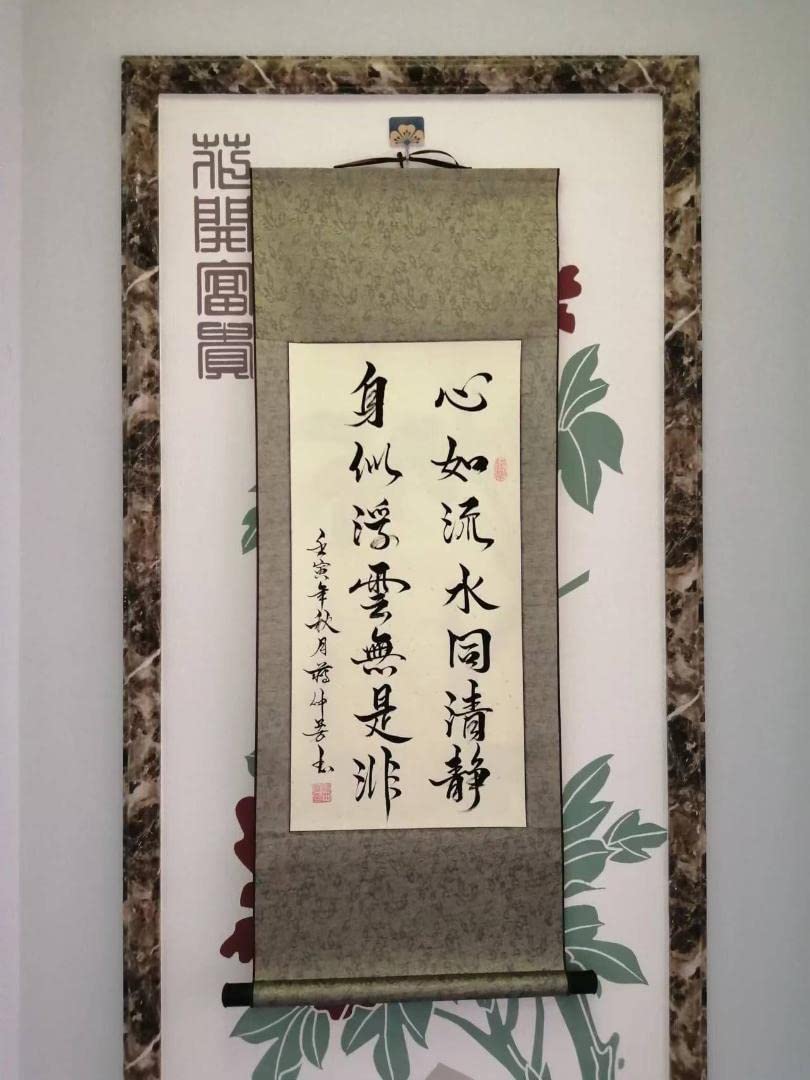 心如流水同清静
身似浮雲無是非
壬寅年秋月蒋仲芸书
花開富貴